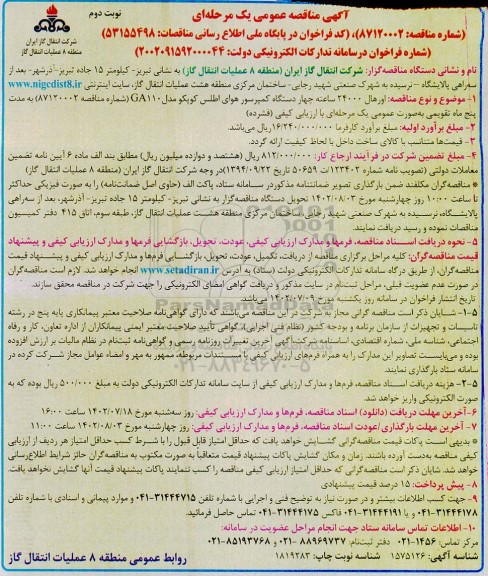 نوبت دوم
آگهی مناقصه عمومی یک مرحله‌ای
(شماره مناقصه: ۸۷۱۲۰۰۰۲)، (کد فراخوان در پایگاه ملی اطلاع رسانی مناقصات: ۵۳۱۵۵۴۹۸)
(شماره فراخوان درسامانه تدارکات الکترونیکی دولت: ۲۰۰۲۰۹۱۵۹۲۰۰۰۰۴۴)
شرکت انتقال گاز ایران
منطقه ۸ عملیات انتقال گاز
نام و نشانی دستگاه مناقصه‌گزار: شرکت انتقال گاز ایران (منطقه ۸ عملیات انتقال گاز) به نشانی تبریز- کیلومتر ۱۵ جاده تبریز-آذرشهر- بعد از
سه‌راهی پالایشگاه –نرسیده به شهرک صنعتی شهید رجایی- ساختمان مرکزی منطقه هشت عملیات انتقال گاز، سایت اینترنتی www.nigcdist8.ir
۱- موضوع و نوع مناقصه: اورهال ۲۴۰۰۰ ساعته چهار دستگاه کمپرسور هوای اطلس کوپکو مدل GA۱۱۰ (شماره مناقصه ۸۷۱۲۰۰۰۲) به مدت
پنج ماه تقویمی به‌صورت عمومی یک مرحله‌ای با ارزیابی کیفی (فشرده)
۲- مبلغ برآورد اولیه: مبلغ برآورد کارفرما ۱۶/۲۴۰/۰۰۰/۰۰۰ ریال می‌باشد.
۳- قیمت‌ها متناسب با کالای ساخت داخل با لحاظ کیفیت ارائه گردد.
۴- مبلغ تضمین شرکت در فرآیند ارجاع کار: ۸۱۲/۰۰۰/۰۰۰ ریال (هشتصد و دوازده میلیون ریال) مطابق بند الف ماده ۶ آیین نامه تضمین
معاملات دولتی (تصویب نامه شماره ۱۲۳۴۰۲/ت ۵۰۶۵۹ تاریخ ۱۳۹۴/۰۹/۲۲)در وجه شرکت انتقال گاز ایران (منطقه ۸ عملیات انتقال گاز)
* مناقصه‌گران مکلفند ضمن بارگذاری تصویر ضمانتنامه مذکوردر سامانه ستاد، پاکت الف (حاوی اصل ضمانتنامه) را به صورت فیزیکی حداکثر
تا ساعت ۱۰:۰۰ روز چهارشنبه مورخ ۱۴۰۲/۰۸/۰۳ تحویل دستگاه مناقصه‌گزار به نشانی تبریز- کیلومتر ۱۵ جاده تبریز- آذرشهر، بعد از سه‌راهی
پالایشگاه، نرسیده به شهرک صنعتی شهید رجایی، ساختمان مرکزی منطقه هشت عملیات انتقال گاز، طبقه سوم، اتاق ۴۱۵ دفتر کمیسیون
مناقصات نموده و رسید دریافت نمایند.
۵- نحوه دریافت اسناد مناقصه، فرمها و مدارک ارزیابی کیفی، عودت، تحویل، بازگشایی فرمها و مدارک ارزیابی کیفی و پیشنهاد
قیمت مناقصه‌گران: کلیه مراحل برگزاری مناقصه از دریافت، تکمیل، عودت، تحویل، بازگشایی فرم‌ها و مدارک ارزیابی کیفی و پیشنهاد قیمت
مناقصه‌گران، از طریق درگاه سامانه تدارکات الکترونیکی دولت (ستاد) به آدرس www.setadiran.ir انجام خواهد شد. لازم است مناقصه‌گران
در صورت عدم عضویت قبلی، مراحل ثبت‌نام در سایت مذکور و دریافت گواهی امضای الکترونیکی را جهت شرکت در مناقصه محقق سازند.
تاریخ انتشار فراخوان در سامانه روز یکشنبه مورخ ۱۴۰۲/۰۷/۰۹ می‌باشد.
۱-۵- شایان ذکر است مناقصه گرانی مجاز به شرکت در مناقصه می‌باشند که دارای گواهی‌نامه صلاحیت معتبر پیمانکاری پایه پنج در رشته
تاسیسات و تجهیزات از سازمان برنامه و بودجه کشور (نظام فنی اجرایی)، گواهی تأیید صلاحیت معتبر ایمنی پیمانکاران از اداره تعاون، کار و رفاه
اجتماعی، شناسه ملی، شماره اقتصادی، اساسنامه شرکت، آگهی آخرین تغییرات روزنامه رسمی و گواهی‌نامه ثبت‌نام در نظام مالیات بر ارزش افزوده
بوده و می‌بایست تصاویر این مدارک را به همراه فرم‌های ارزیابی کیفی با مستندات مربوطه، ممهور به مهر و امضاء عوامل مجاز شرکت کرده در
سامانه ستاد بارگذاری نمایند.
۲-۵- هزینه دریافت اسناد مناقصه، فرم‌ها و مدارک ارزیابی کیفی از سایت سامانه تدارکات الکترونیکی دولت به مبلغ ۵۰۰/۰۰۰ ریال بوده که به
صورت الکترونیکی واریز خواهد شد.
۶- آخرین مهلت دریافت (دانلود) اسناد مناقصه، فرم‌ها و مدارک ارزیابی کیفی: روز سه‌شنبه مورخ ۱۴۰۲/۰۷/۱۸ ساعت ۱۶:۰۰
۷- آخرین مهلت بارگذاری/عودت اسناد مناقصه، فرم‌ها و مدارک ارزیابی کیفی: روز چهارشنبه مورخ ۱۴۰۲/۰۸/۰۳ ساعت ۱۱:۰۰
* بدیهی است پاکات قیمت مناقصه‌گرانی گشایش خواهد یافت که حداقل امتیاز قابل قبول را با شرط کسب حداقل امتیاز هر ردیف از ارزیابی
کیفی مناقصه به‌دست آورده باشند. زمان و مکان گشایش پاکات پیشنهاد قیمت متعاقباً به صورت مکتوب به مناقصه‌گران حائز شرایط اطلاع‌رسانی
خواهد شد. شایان ذکر است مناقصه‌گرانی که حداقل امتیاز ارزیابی کیفی مناقصه را کسب ننمایند پاکات پیشنهاد قیمت آنها گشایش نخواهد یافت.
۸- پیش پرداخت: ۱۵ درصد قیمت پیشنهادی
۹- جهت کسب اطلاعات بیشتر و در صورت نیاز به توضیح فنی و اجرایی با شماره تلفن ۳۱۴۴۴۷۱۵-۰۴۱ و موارد پیمانی و اسنادی با شماره تلفن
۳۱۴۴۴۱۷۸-۰۴۱ و یا ۳۱۴۴۴۱۹۱-۰۴۱ فاکس ۳۱۴۴۴۱۷۵-۰۴۱ تماس حاصل فرمائید.
۱۰- اطلاعات تماس سامانه ستاد جهت انجام مراحل عضویت در سامانه:
مرکز تماس: ۱۴۵۶-۰۲۱ دفتر ثبت‌نام: ۸۸۹۶۹۷۳۷-۰۲۱ و ۸۵۱۹۳۷۶۸-۰۲۱
شناسه آگهی: ۱۵۷۵۱۲۶ شناسه نوبت چاپ: ۱۸۱۹۲۸۳
روابط عمومی منطقه ۸ عملیات انتقال گاز
ParsNamadData
۰۲۱-۸۸۳۴۹۶۷۰-۵